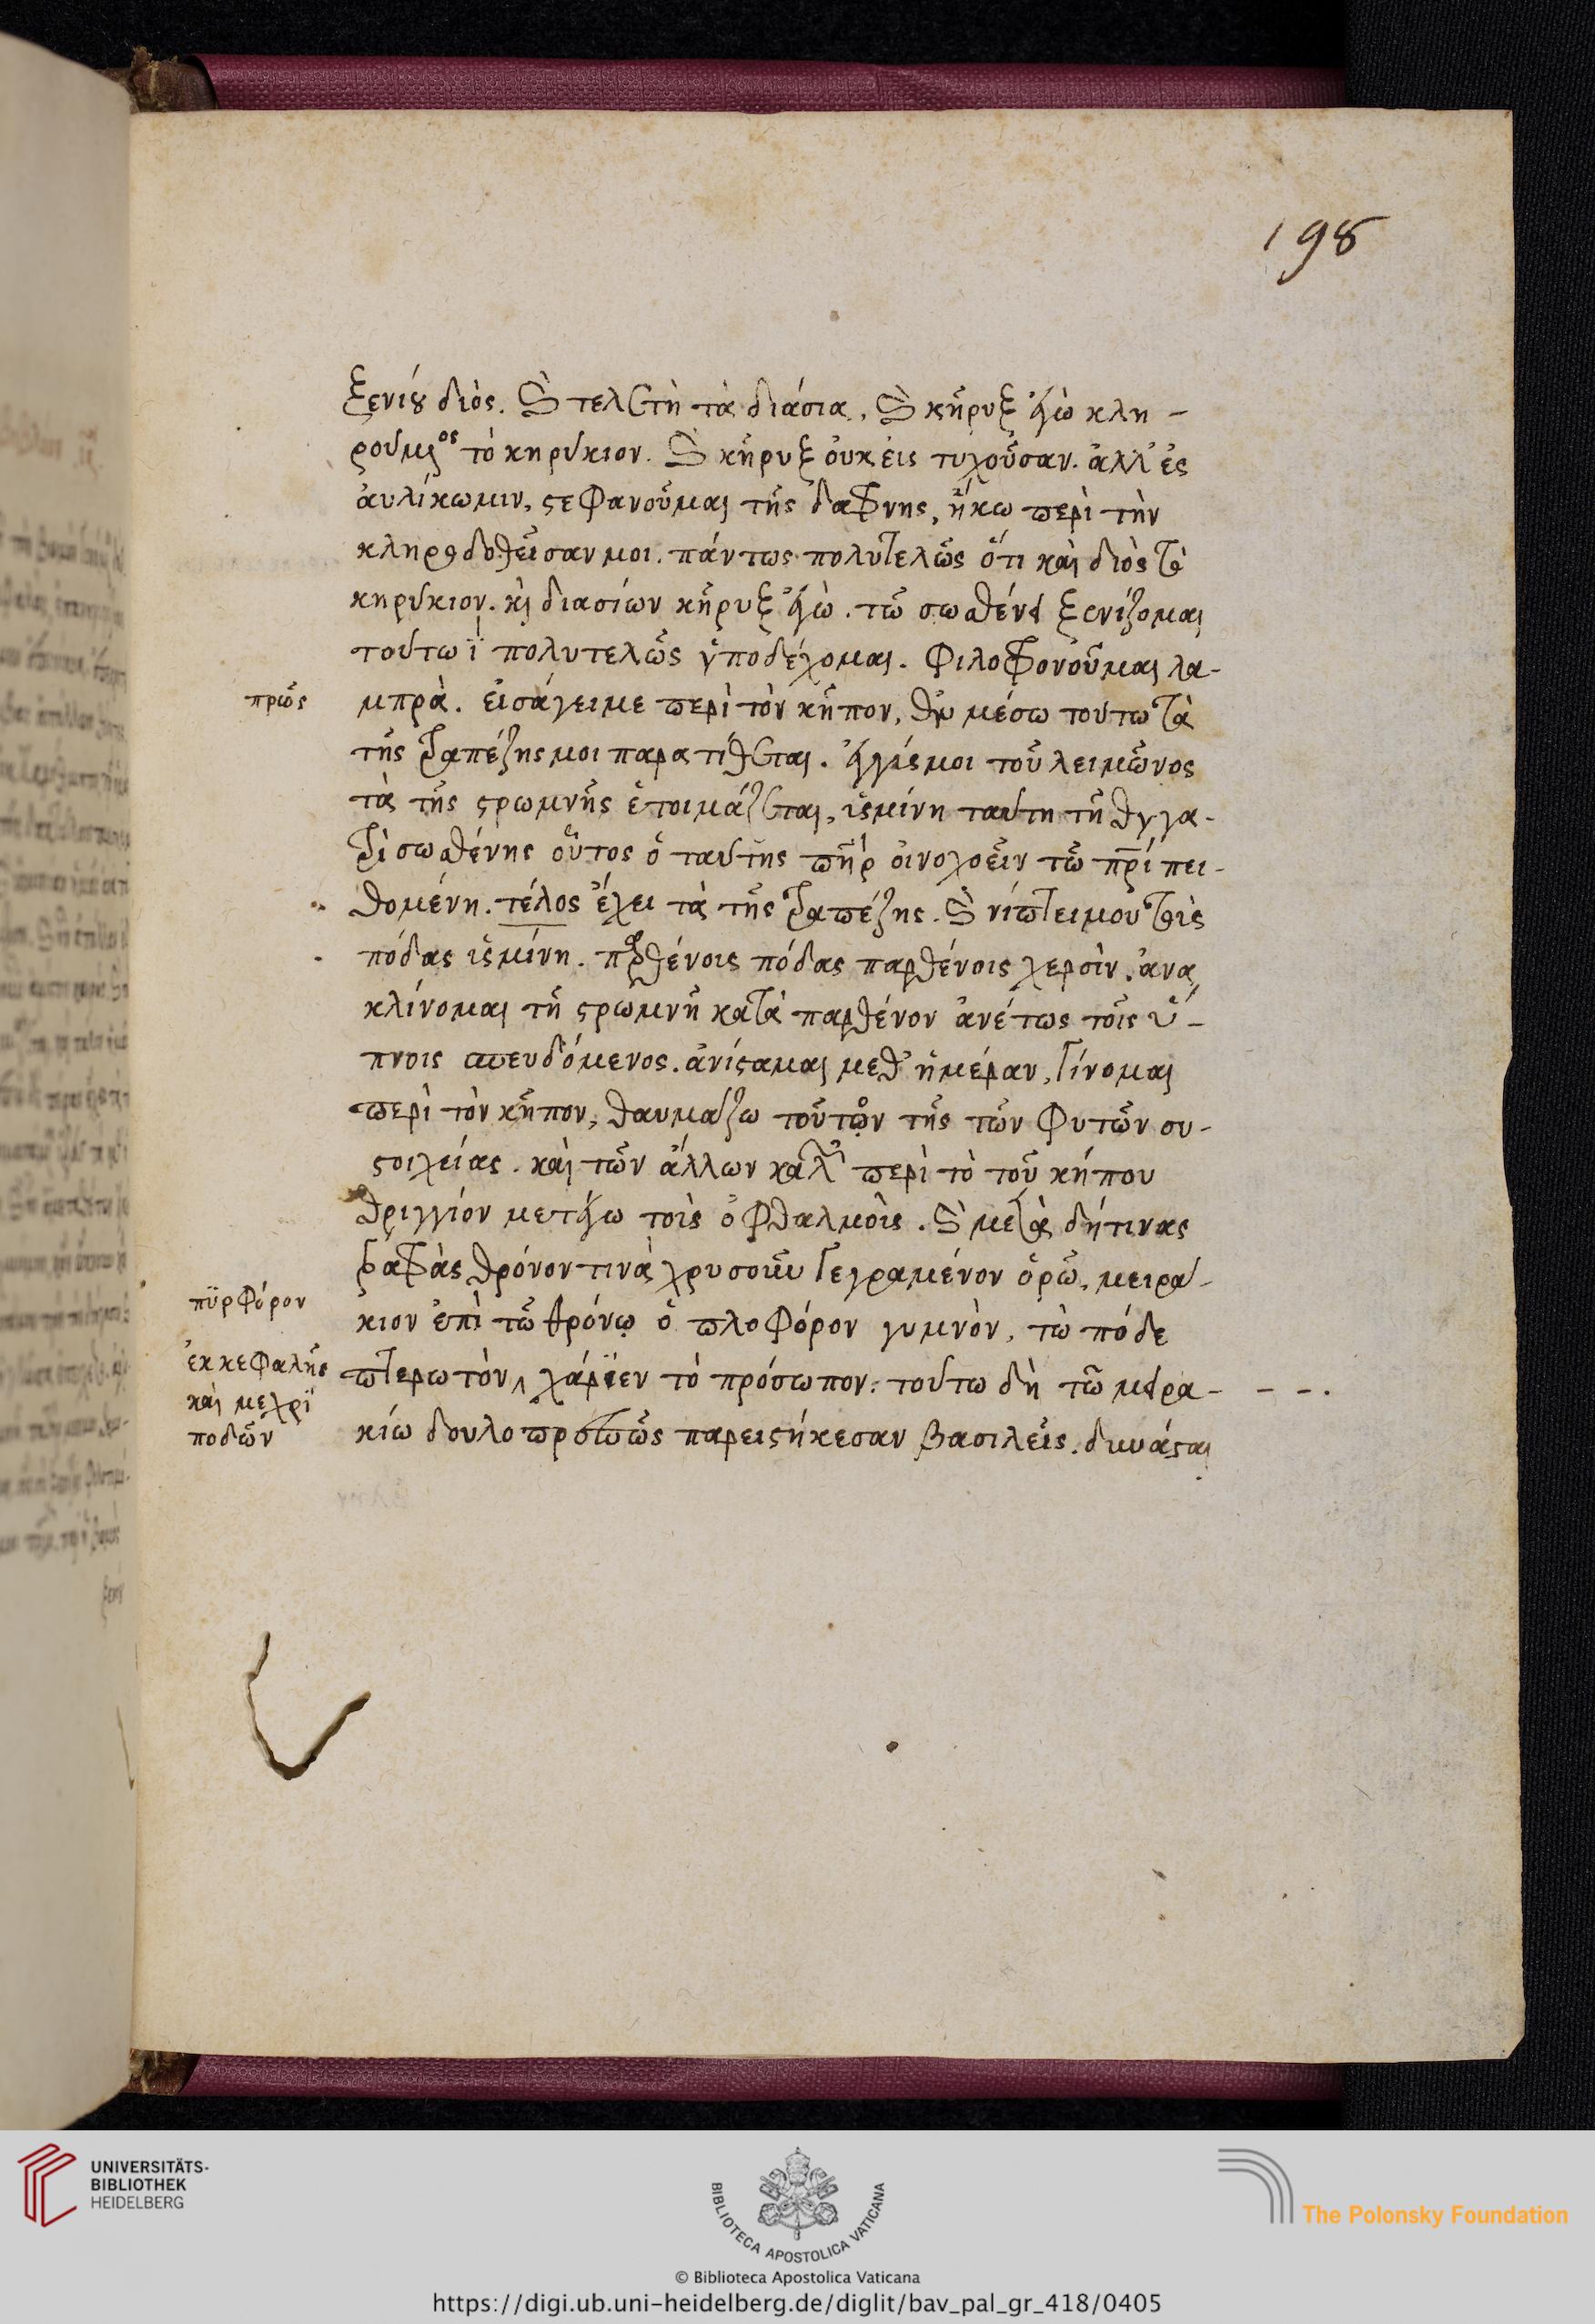 198
ξενίου διὸς. καὶ τελετὴ τὰ διάσια, καὶ κῆρυξ ἐγὼ κλη-
ρούμενος τὸ κηρύκιον. καὶ κῆρυξ ὀυκ ἐις τυχοῦσαν. ἀλλ' ἐς
ἀυλίκωμιν, στεφανοῦμαι τῆς δαφνης, ἥκω περὶ τὴν
κληροδοθεῖσαν μοι. πάντως πολυτελῶς ὅτι καὶ διὸς τὸ
κηρύκιον. καὶ διασίων κῆρυξ ἐγὼ. τῶ σωσθένει ξενίζομαι
τούτω ϊ πολυτελῶς ὑποδέχομαι. φιλοφρονοῦμαι λα-
πρῶς
μπρὰ. εἰσάγει με περὶ τὸν κῆπον, ἐν μέσω τούτω τὰ
τῆς τραπέζης μοι παρατίθεται. ἐγγύς μοι τοῦ λειμῶνος
τὰ τῆς στρωμνῆς ἑτοιμάζεται, ὑσμίνη ταύτη τῆ θυγα-
τρὶ σωσθένης οὗτος ὁ ταύτης πατὴρ οἰνοχοεῖν τῶ πατρί πει-
θομένη. τέλος ἔχει τὰ τῆς τραπέζης. καὶ νίπτει μου τοὺς
πόδας ὑσμίνη. παρθένοις πόδας παρθένοις χερσὶν. ἀνα
κλίνομαι τῆ στρωμνῆ κατὰ παρθένον ἀνέτως τοῖς ὕ-
πνοις σπευδόμενος. ἀνίσταμαι μεθ' ἡμέραν, γίνομαι
περὶ τὸν κῆπον, θαυμάζω τοῦτον τῆς τῶν φυτῶν συ-
στοιχείας. καὶ τῶν ἄλλων καλῶν περὶ τὸ τοῦ κήπου
θριγγίον μετάγω τοὶς ὀφθαλμοὶς. καὶ μετὰ δήτινας
γραφὰς θρόνον τινὰ χρυσοῦν γεγραμένον ὁρῶ, μειρά-
πϋρφόρον
κιον ἐπὶ τῶ θρόνῳ ὁπλοφόρον γυμνὸν, τὼ πόδε
ἐκ κεφαλῆς
καὶ μέχρϊ
ποδῶν
πτερωτὸν, χάρϊεν τὸ πρόσωπον. τούτω δὴ τῶ μειρα- - - .
κίω δουλοπρεπῶς παρειστήκεσαν βασιλεῖς. δυνάσται
UNIVERSITÄTS-
BIBLIOTHEK
HEIDELBERG
BIBLIOTECA APOSTOLICA VATICANA
The Polonsky Foundation
© Biblioteca Apostolica Vaticana
https://digi.ub.uni-heidelberg.de/diglit/bav_pal_gr_418/0405